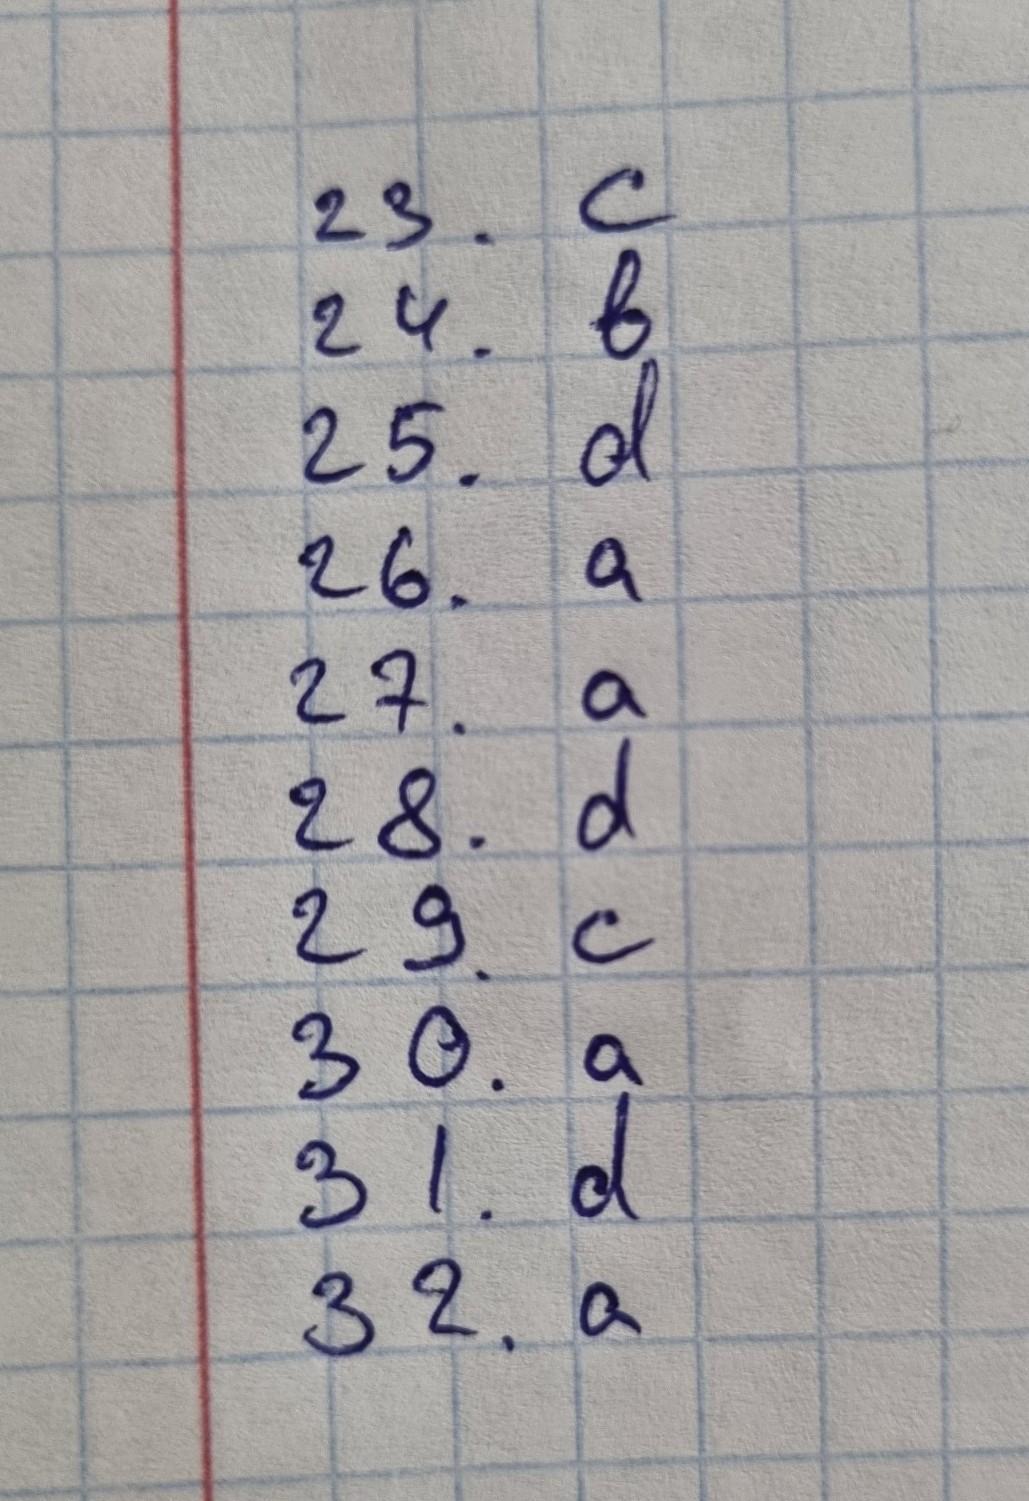 23. c
24. b
25. d
26. a
27. a
28. d
29. c
30. a
31. d
32. a